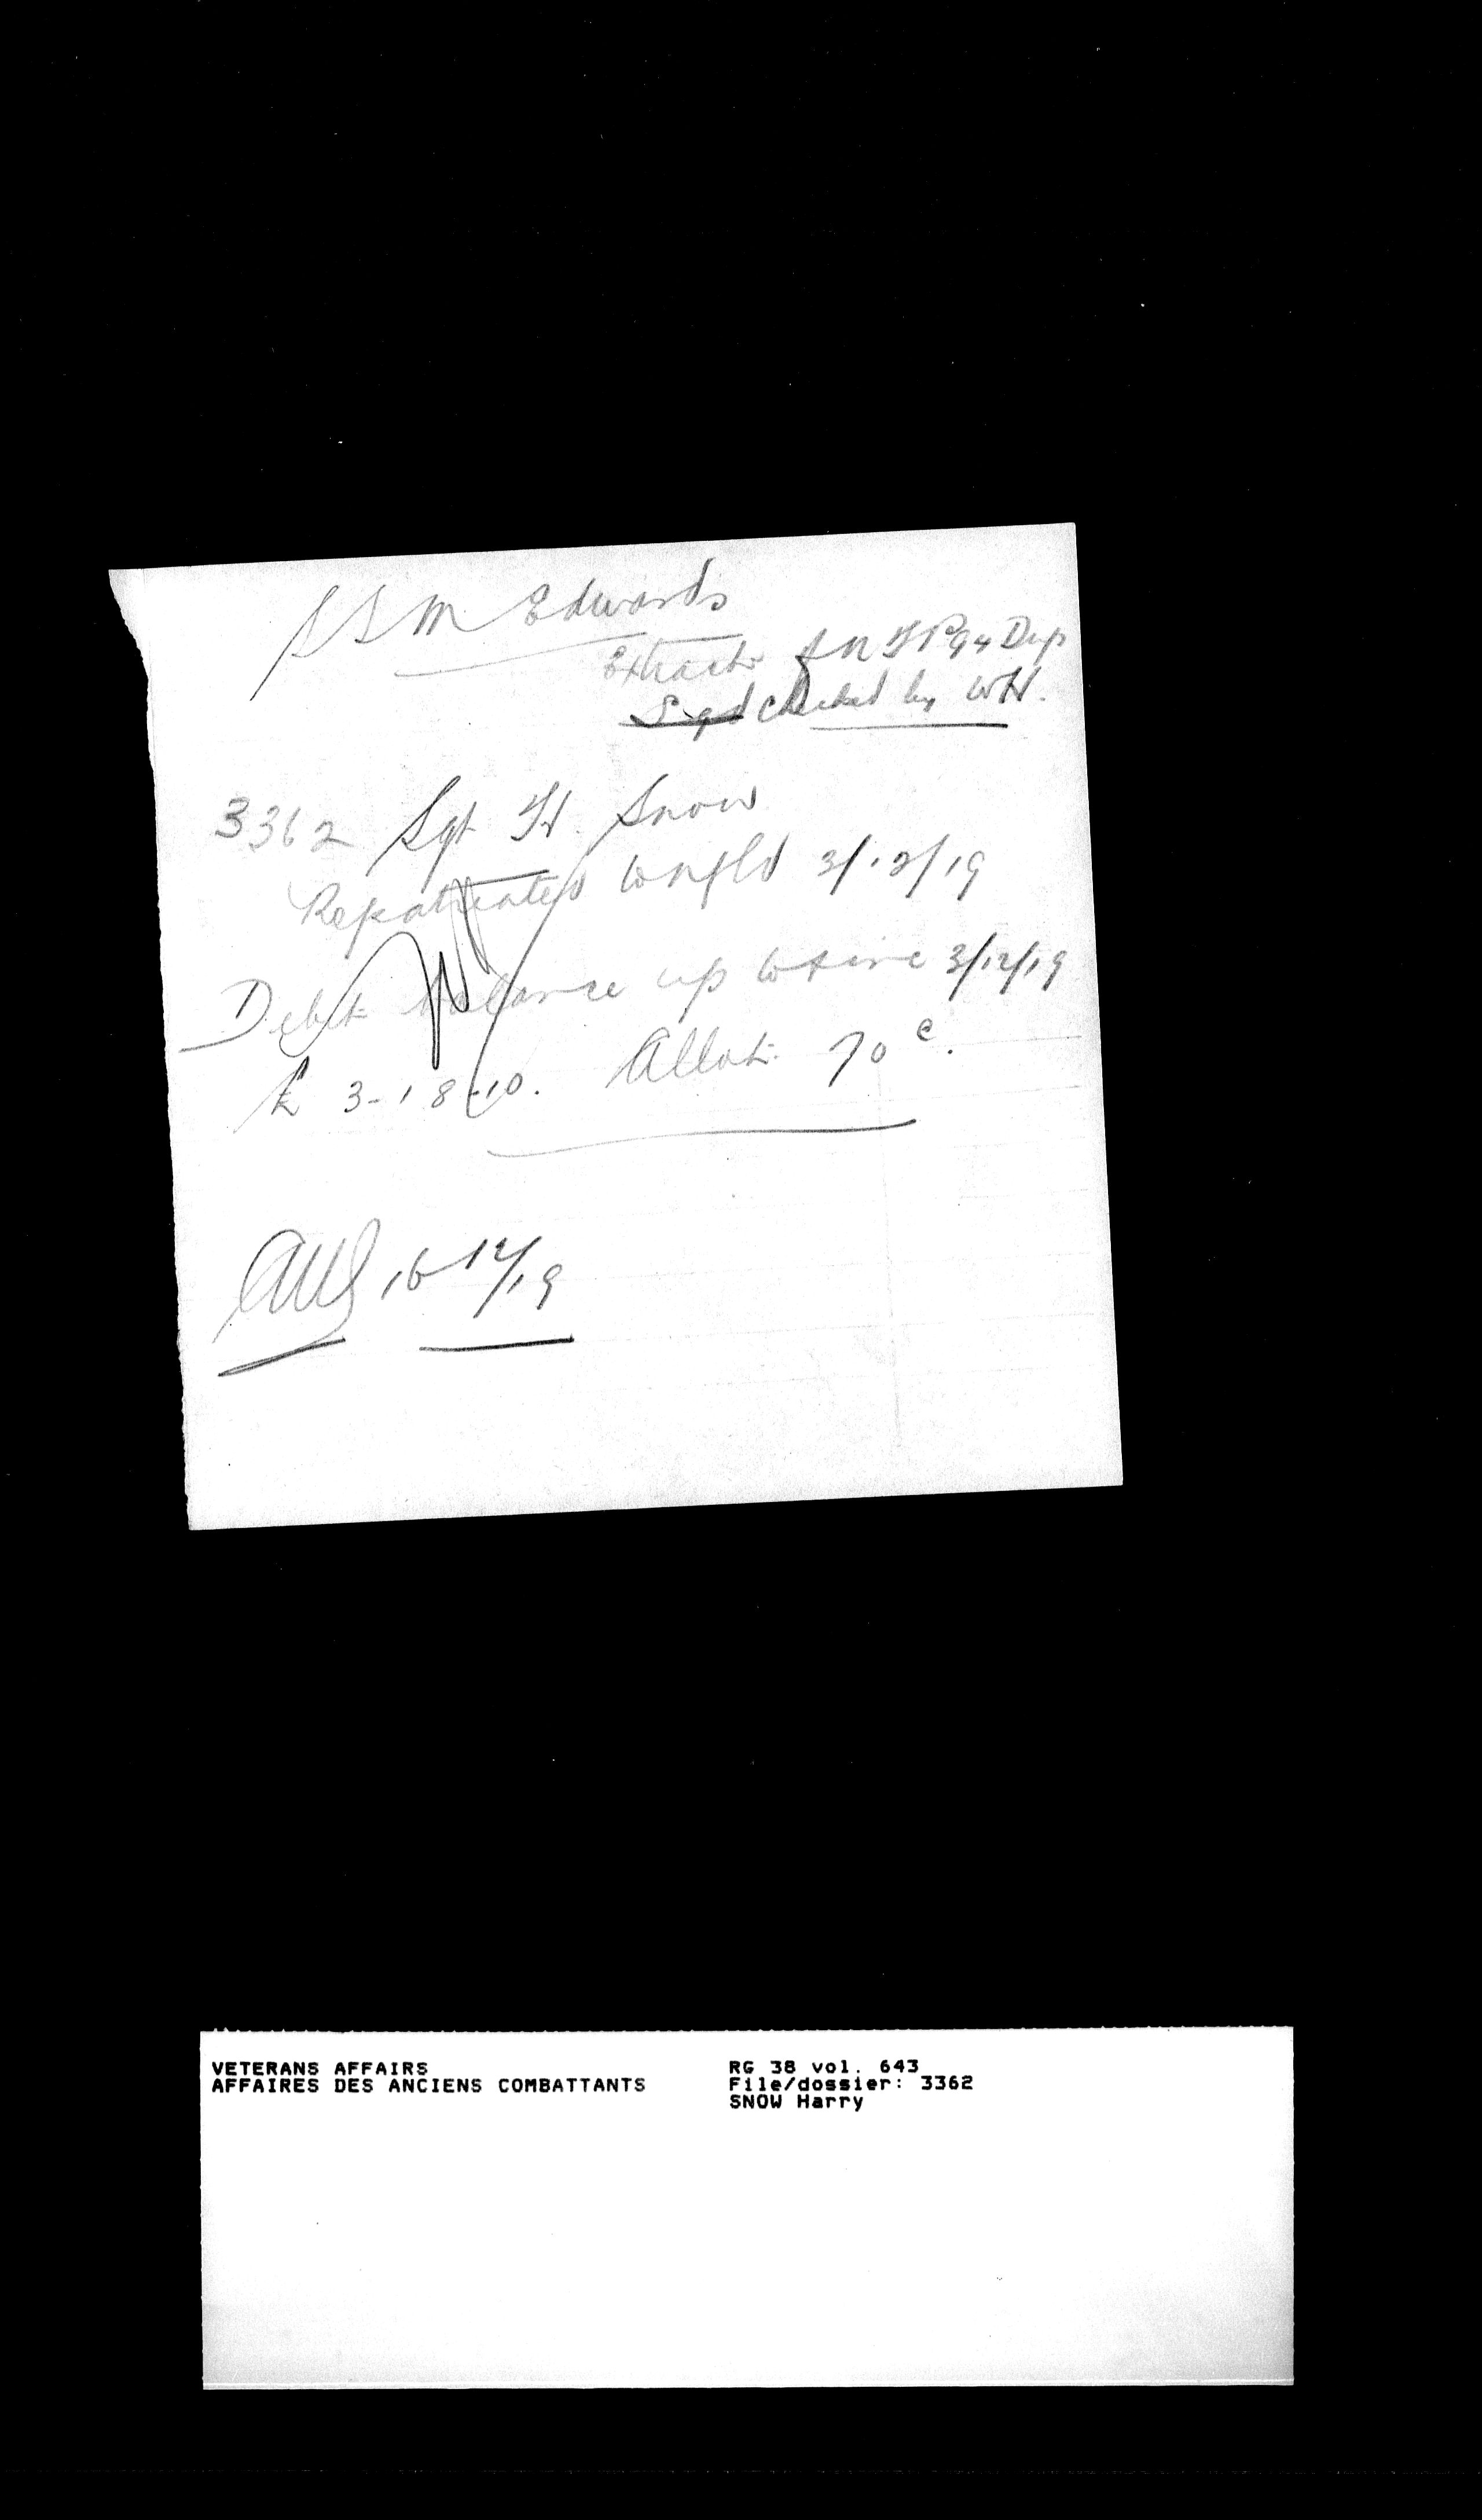 SSM Edwards
Extract
Sgd checked by WH.
3362 Sgt H. Snow
Repatriated to Nfld 3/12/19
Debit balance up to time 3/12/19
£ 3-18-10. Allot. 70 c.
16/12/19
VETERANS AFFAIRS RG 38 vol. 643
AFFAIRES DES ANCIENS COMBATTANTS File/dossier: 3362
SNOW Harry